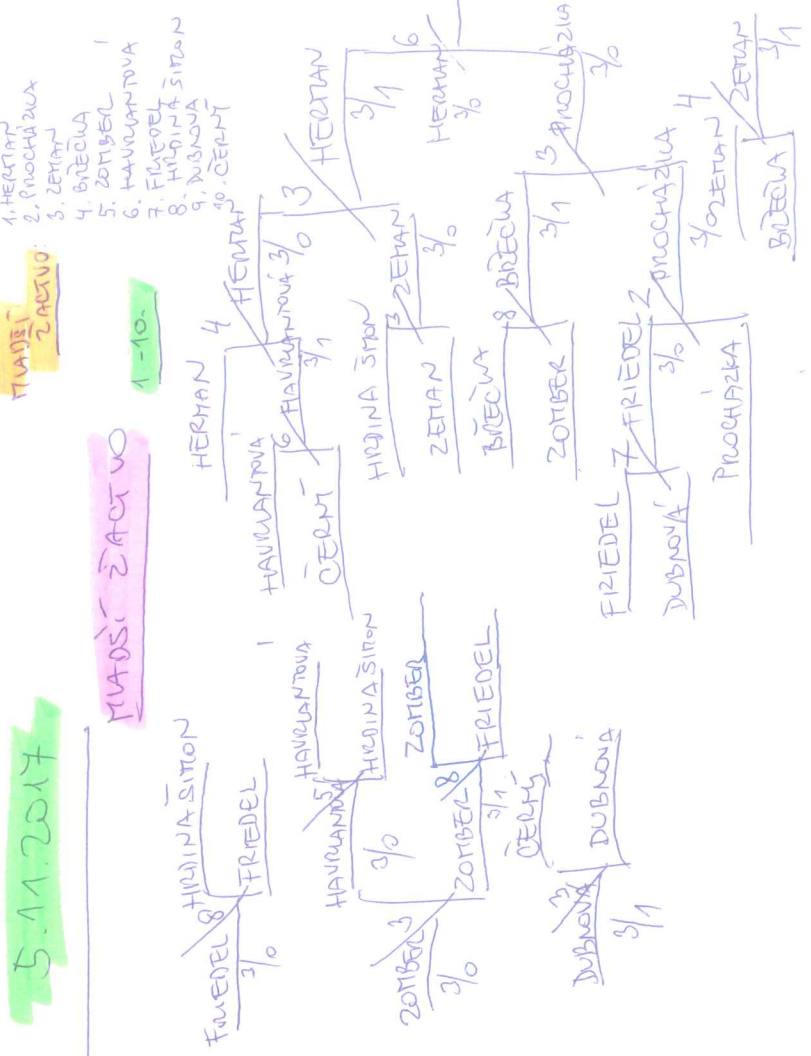 5.11.2017
MLADŠÍ ŽACTVO
1-10.
MLADŠÍ
ŽACTVO:
1. HERMAN
2. PROCHÁZKA
3. ZEMAN
4. BŘEČKA
5. ZOMBER
6. HAVRLANTOVÁ
7. FRIEDEL
8. HRDINA ŠIMON
9. DUBNOVÁ
10. ČERNÝ
HERMAN
4
HERMAN
HAVRLANTOVÁ
6
HAVRLANTOVÁ 3/0
3/1
ČERNÝ
3
HERMAN
3/1
HRDINA ŠIMON
3
ZEMAN
3/0
ZEMAN
6
HERMAN
3/0
BŘEČKA
8
BŘEČKA
3/1
ZOMBER
3
PROCHÁZKA
3/0
FRIEDEL
7
FRIEDEL
3/0
DUBNOVÁ
2
PROCHÁZKA
3/0
PROCHÁZKA
ZEMAN
4
ZEMAN
3/1
BŘEČKA
HRDINA ŠIMON
8
FRIEDEL
3/0
FRIEDEL
HAVRLANTOVÁ
5
HAVRLANTOVÁ
3/0
HRDINA ŠIMON
ZOMBER
8
ZOMBER
3/1
FRIEDEL
3
ZOMBER
3/0
ČERNÝ
3
DUBNOVÁ
3/1
DUBNOVÁ